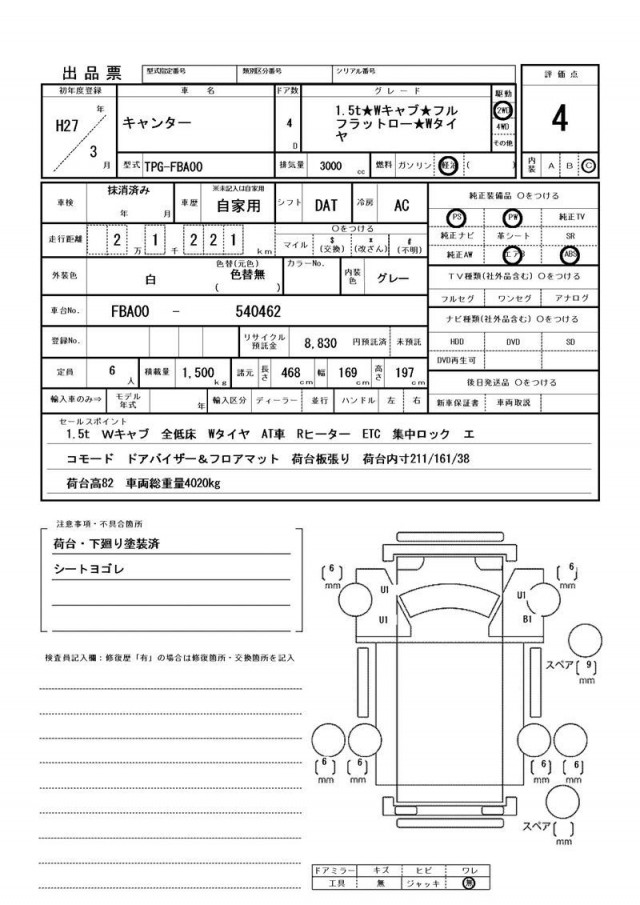 出品票 型式指定番号 類別区分番号 シリアル番号
評価点
初年度登録 車名 ドア数 グレード 駆動
H27 年 3 月
キャンター
4 D
1.5t★Wキャブ★フル
フラットロー★Wタイ
ヤ
2WD
4WD
その他
4
型式 TPG-FBA00 排気量 3000 cc 燃料 ガソリン 軽油 ( )
内装 A B C
車検 抹消済み 年 月 車歴 ※未記入は自家用 自家用 シフト DAT 冷房 AC
純正装備品 〇をつける
PS PW 純正TV
走行距離 2 万 1 千 2 2 1 km 〇をつける
マイル $ (交換) * (改ざん) # (不明)
純正ナビ 革シート SR
純正AW エアB ABS
外装色 白 色替(元色) 色替無 ( ) カラーNo. 内装色 グレー
TV種類(社外品含む) 〇をつける
フルセグ ワンセグ アナログ
車台No. FBA00 - 540462
ナビ種類(社外品含む) 〇をつける
登録No. リサイクル預託金 8,830 円預託済 未預託
HDD DVD SD
DVD再生可
定員 6 人 積載量 1,500 kg 諸元 長さ 468 cm 幅 169 cm 高さ 197 cm
後日発送品 〇をつける
輸入車のみ⇒ モデル年式 年 輸入区分 ディーラー 並行 ハンドル 左 右
新車保証書 車両取説
セールスポイント
1.5t Wキャブ 全低床 Wタイヤ AT車 Rヒーター ETC 集中ロック エ
コモード ドアバイザー&フロアマット 荷台板張り 荷台内寸211/161/38
荷台高82 車両総重量4020kg
注意事項・不具合箇所
荷台・下廻り塗装済
シートヨゴレ
検査員記入欄：修復歴「有」の場合は修復箇所・交換箇所を記入
[6] mm
U1
U1
U1
B1
[6] mm
スペア[9] mm
[6] mm
[6] mm
[6] mm
[6] mm
スペア[ ] mm
ドアミラー キズ ヒビ ワレ
工具 無 ジャッキ 無